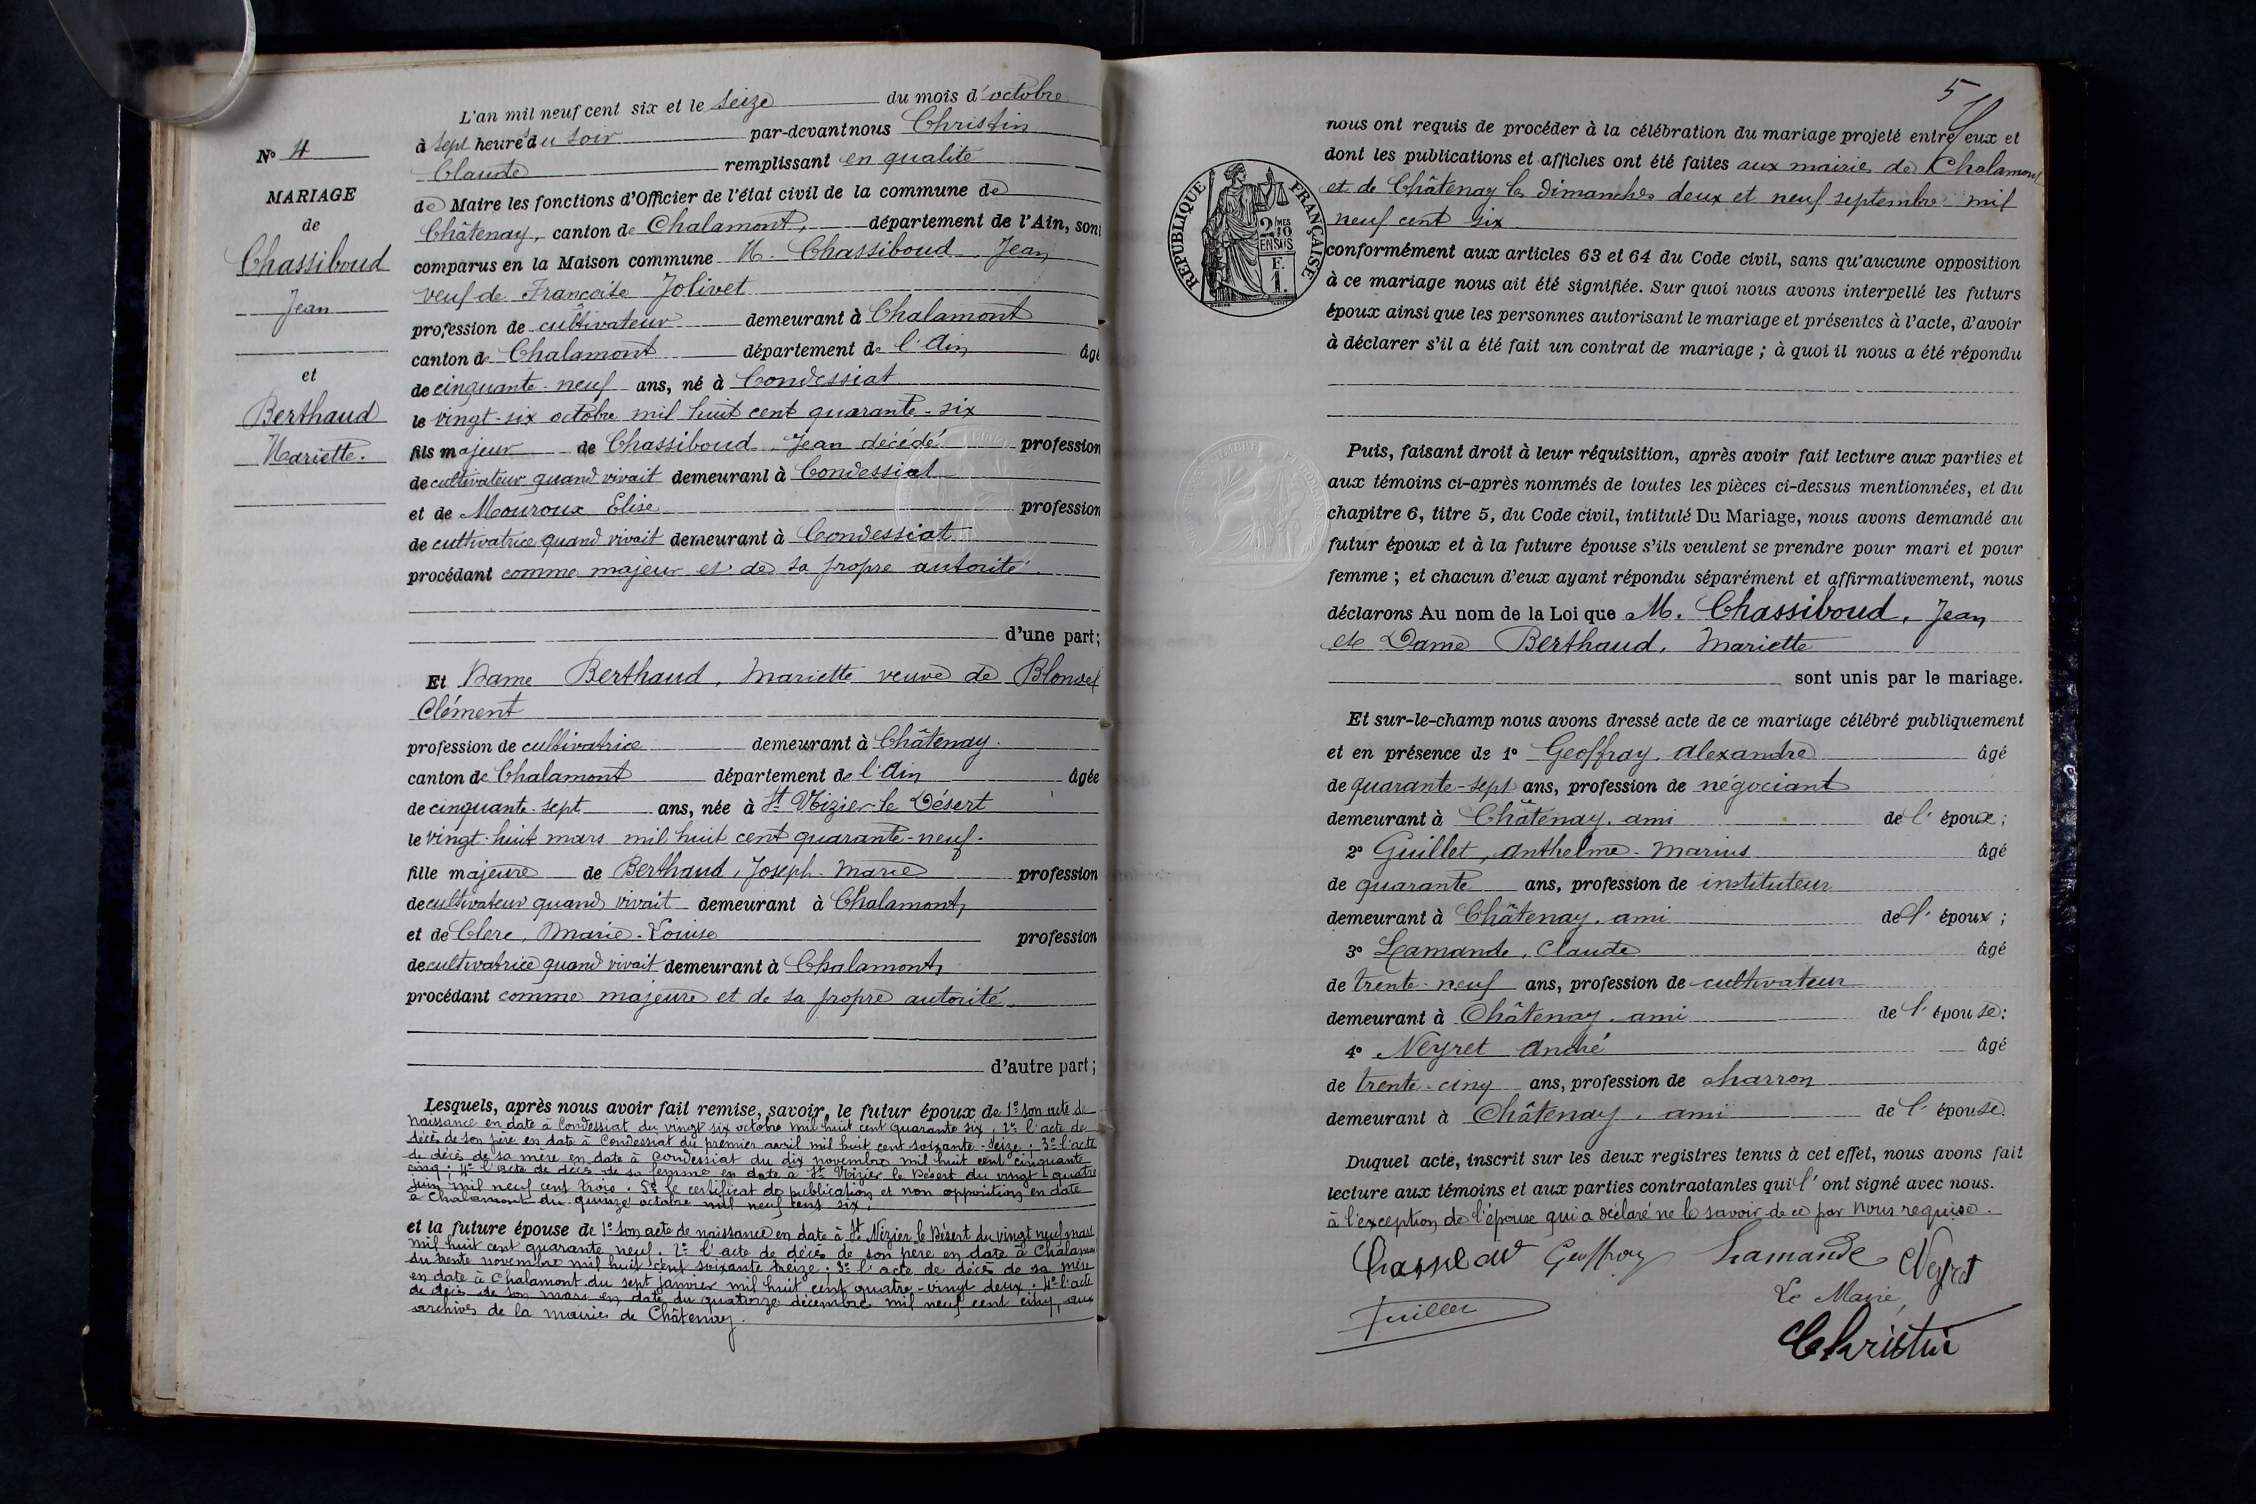 N° 4
MARIAGE
de
Chassiboud
Jean
et
Berthaud
Mariette.
L'an mil neuf cent six et le seize du mois d'octobre
à sept heures du soir par-devant nous Christin
Claude remplissant en qualité
de Maire les fonctions d'Officier de l'état civil de la commune de
Châtenay, canton de Chalamont, département de l'Ain, sont
comparus en la Maison commune M. Chassiboud, Jean,
veuf de Françoise Jolivet
profession de cultivateur demeurant à Chalamont
canton de Chalamont département de l'Ain âgé
de cinquante-neuf ans, né à Condessiat
le vingt-six octobre mil huit cent quarante-six
fils majeur de Chassiboud, Jean décédé profession
de cultivateur quand vivait demeurant à Condessiat
et de Mouroux Elise profession
de cultivatrice quand vivait demeurant à Condessiat
procédant comme majeur et de sa propre autorité.
d'une part;
Et Dame Berthaud, Mariette veuve de Blondel
Clément
profession de cultivatrice demeurant à Châtenay.
canton de Chalamont département de l'Ain âgée
de cinquante-sept ans, née à St Nizier-le Désert
le vingt-huit mars mil huit cent quarante-neuf.
fille majeure de Berthaud, Joseph-Marie profession
de cultivateur quand vivait demeurant à Chalamont,
et de Clerc, Marie-Louise profession
de cultivatrice quand vivait demeurant à Chalamont,
procédant comme majeure et de sa propre autorité.
d'autre part;
Lesquels, après nous avoir fait remise, savoir, le futur époux de 1° son acte de
naissance en date à Condessiat du vingt six octobre mil huit cent quarante six, 2° l'acte de
décès de son père en date à Condessiat du premier avril mil huit cent soixante-seize; 3° l'acte
de décès de sa mère en date à Condessiat du dix novembre mil huit cent cinquante
cinq; 4° l'acte de décès de sa femme en date à St Nizier le Désert du vingt-quatre
juin mil neuf cent trois. 5° le certificat de publication et non opposition en date
à Chalamont du quinze octobre mil neuf cent six.
et la future épouse de 1° son acte de naissance en date à St Nizier le Désert du vingt neuf mars
mil huit cent quarante neuf. 2° l'acte de décès de son père en date à Chalamont
du trente novembre mil huit cent soixante treize; 3° l'acte de décès de sa mère
en date à Chalamont du sept janvier mil huit cent quatre-vingt deux; 4° l'acte
de décès de son mari en date du quatorze décembre mil neuf cent cinq, aux
archives de la mairie de Châtenay.
5
RÉPUBLIQUE FRANÇAISE
2/10 MES
EN SUS
F.
1.
nous ont requis de procéder à la célébration du mariage projeté entre eux et
dont les publications et affiches ont été faites aux mairies de Chalamont
et de Châtenay les dimanches deux et neuf septembre mil
neuf cent six
conformément aux articles 63 et 64 du Code civil, sans qu'aucune opposition
à ce mariage nous ait été signifiée. Sur quoi nous avons interpellé les futurs
époux ainsi que les personnes autorisant le mariage et présentes à l'acte, d'avoir
à déclarer s'il a été fait un contrat de mariage; à quoi il nous a été répondu
Puis, faisant droit à leur réquisition, après avoir fait lecture aux parties et
aux témoins ci-après nommés de toutes les pièces ci-dessus mentionnées, et du
chapitre 6, titre 5, du Code civil, intitulé Du Mariage, nous avons demandé au
futur époux et à la future épouse s'ils veulent se prendre pour mari et pour
femme; et chacun d'eux ayant répondu séparément et affirmativement, nous
déclarons Au nom de la Loi que M. Chassiboud, Jean
et Dame Berthaud, Mariette
sont unis par le mariage.
Et sur-le-champ nous avons dressé acte de ce mariage célébré publiquement
et en présence de 1° Geoffray, Alexandre âgé
de quarante-sept ans, profession de négociant
demeurant à Châtenay, ami de l'époux;
2° Guillet, Anthelme-Marius âgé
de quarante ans, profession de instituteur
demeurant à Châtenay, ami de l'époux;
3° Lamande, Claude âgé
de trente-neuf ans, profession de cultivateur
demeurant à Châtenay, ami de l'épouse;
4° Neyret André âgé
de trente-cinq ans, profession de charron
demeurant à Châtenay, ami de l'épouse.
Duquel acte, inscrit sur les deux registres tenus à cet effet, nous avons fait
lecture aux témoins et aux parties contractantes qui l'ont signé avec nous.
à l'exception de l'épouse qui a déclaré ne le savoir de ce par nous requise.
Geoffray Lamande Neyret
Le Maire,
Guillet
Christin